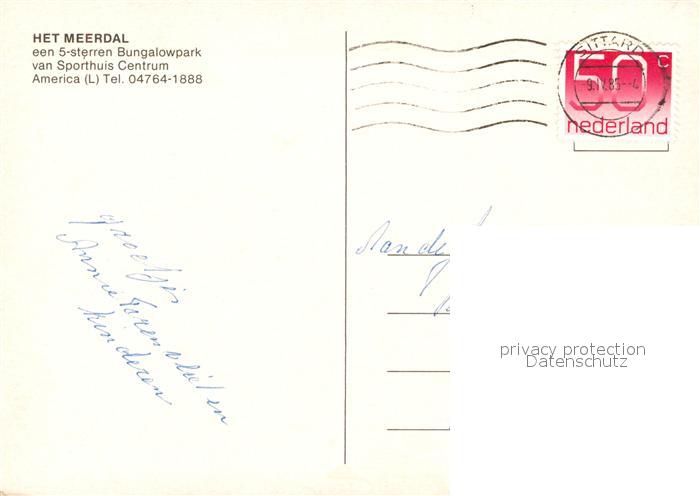 HET MEERDAL
een 5-sterren Bungalowpark
van Sporthuis Centrum
America (L) Tel. 04764-1888
SITTARD
9.IV.85--4
50 C
nederland
groetjes
Annie
kinderen
Aan de
privacy protection
Datenschutz